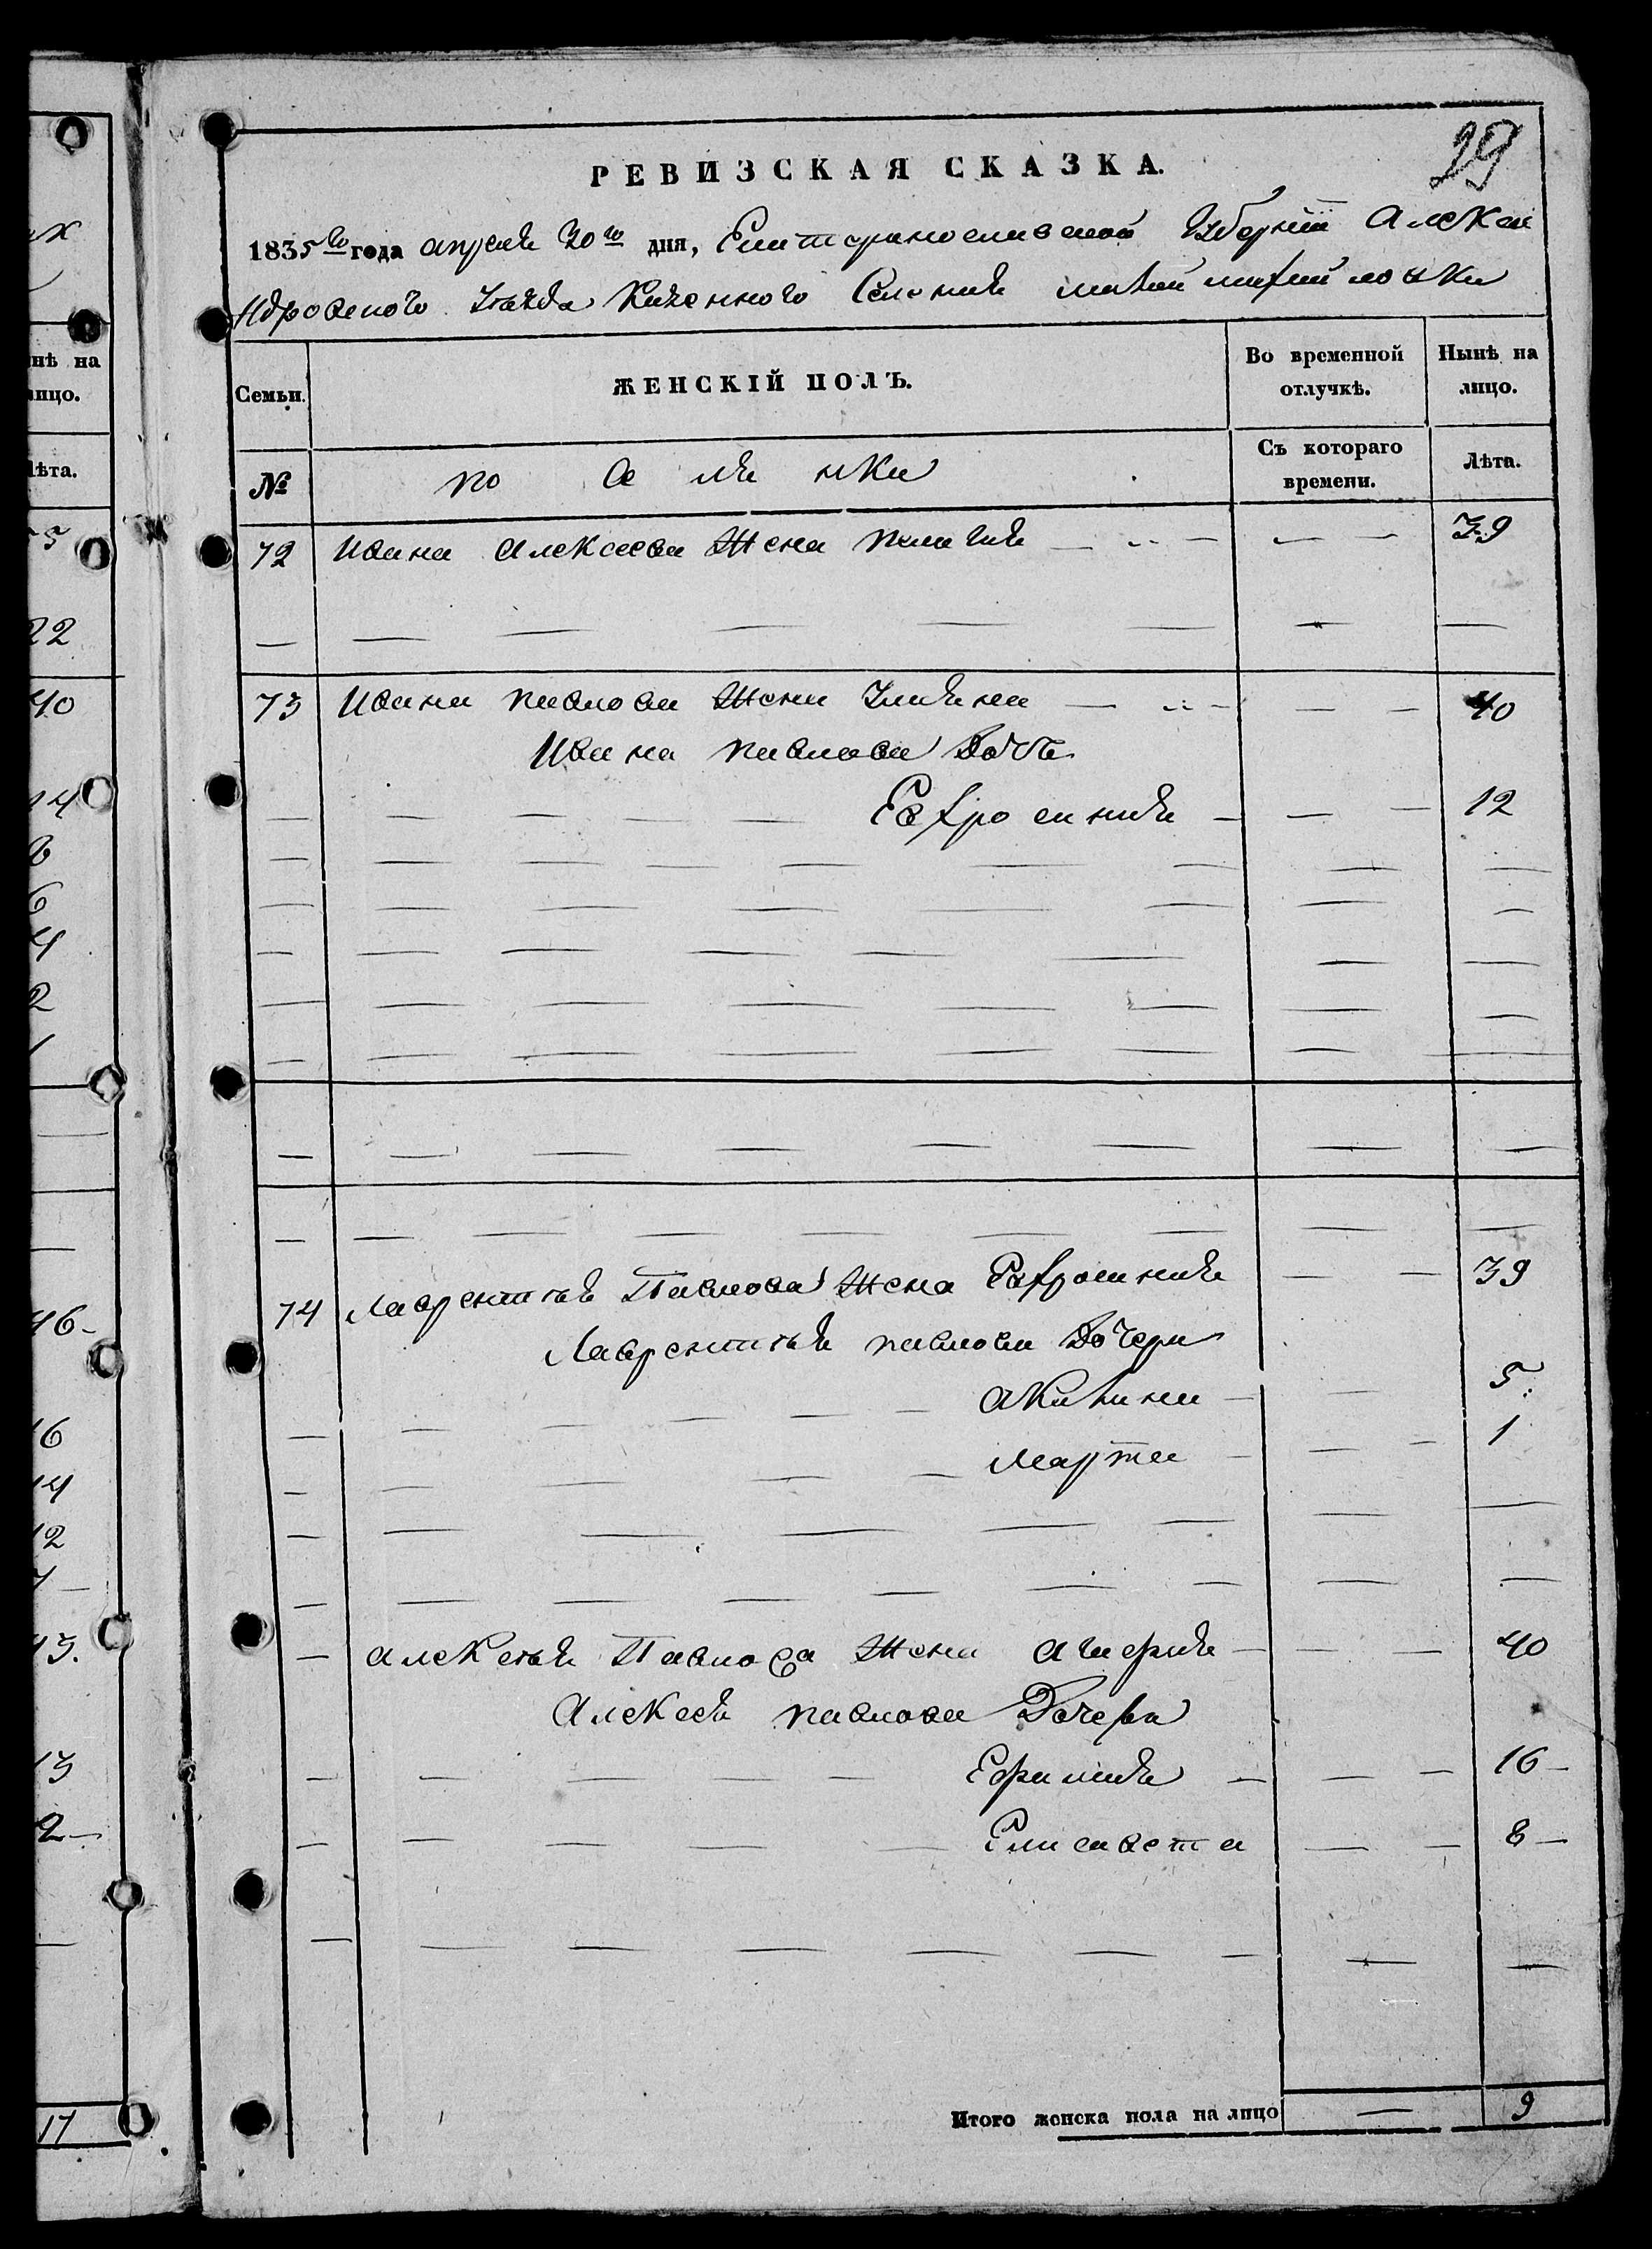 29
РЕВИЗСКАЯ СКАЗКА.
1835го года апреля 20го дня, Екатеринославской Губернии Алексан
дровского Уезда Казенного Селения
Семьи. ЖЕНСКІЙ ПОЛЪ. Во временной отлучкѣ. Нынѣ на лицо.
№ По се ля нки Съ котораго времени. Лѣта.
72 Ивана Алексеева Жена Пелагия 39
73 Ивана Павлова Жена Улияна 40
Ивана Павлова Дочь
Евфросиния 12
74 Лаврентия Павлова Жена Евфросиния 39
Лаврентия Павлова Дочери
Акилина 5
Марфа 1
Алексея Павлова Жена 40
Алексея Павлова Дочери
16
Елисавета 8
Итого женска пола на лицо — 9
нѣ на
лицо.
лѣта.
22
40
14
6
4
2
1
16
14
12
13
2
17